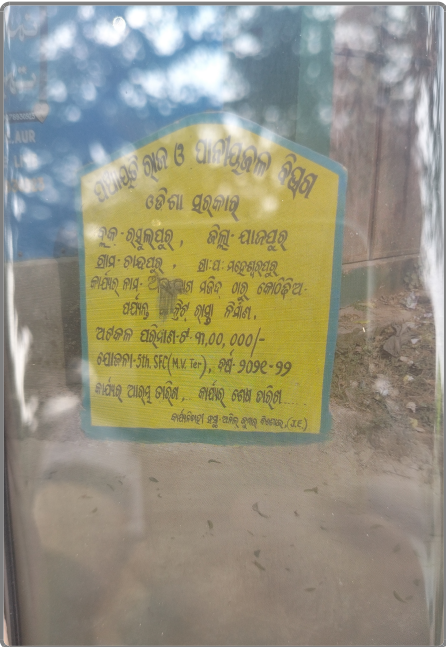 ପଞ୍ଚାୟତି ରାଜ ଓ ପାନୀୟଜଳ ବିଭାଗ
ଓଡିଶା ସରକାର
ବ୍ଲକ-ରସୁଲପୁର, ଜିଲ୍ଲା-ଯାଜପୁର
ଗ୍ରାମ-ଚାନ୍ଦପୁର, ଗ୍ରା:ପ:-ମହେଶ୍ୱରପୁର
କାର୍ଯ୍ୟର ନାମ- ମସଜିଦ ଠାରୁ
ପର୍ଯ୍ୟନ୍ତ ରାସ୍ତା ନିର୍ମାଣ,
ଅଟକଳ ପରିମାଣ-ଟ ୩,00,000/-
ଯୋଜନା-5th. SFC(M.V. Ter), ବର୍ଷ-୨୦୨୧-୨୨
କାର୍ଯ୍ୟର ଆରମ୍ଭ ତାରିଖ, କାର୍ଯ୍ୟର ଶେଷ ତାରିଖ.....
କାର୍ଯ୍ୟନିର୍ବାହୀ (J.E)